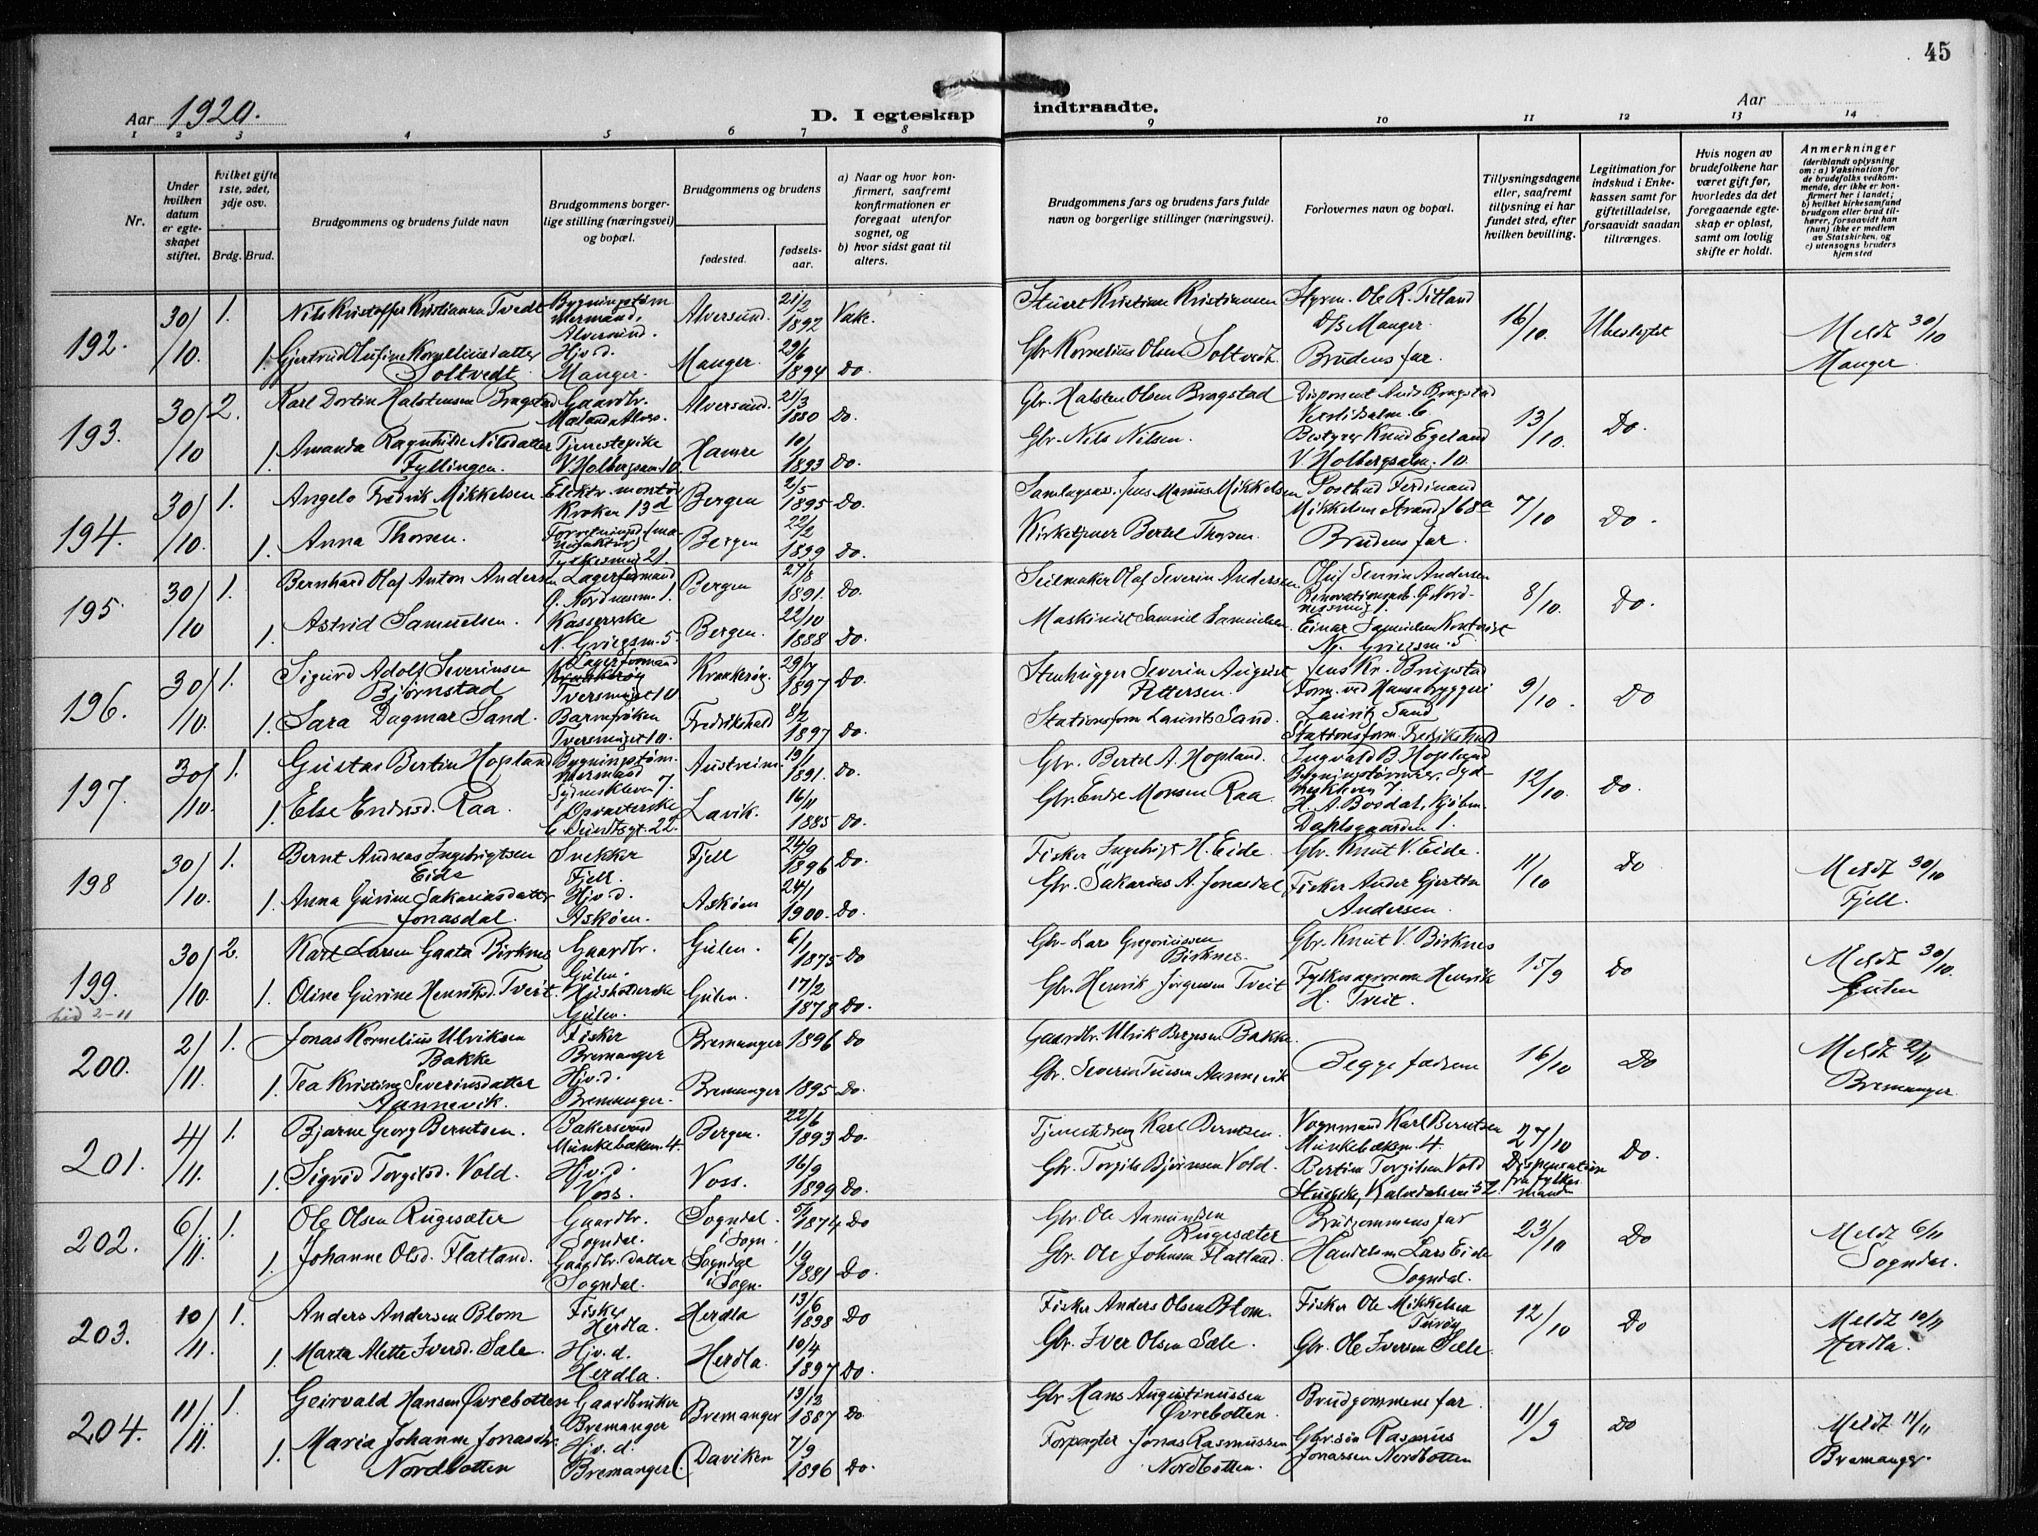 45
Aar 1920.
D. I egteskap indtraadte.
Aar
1 2 3 4 5 6 7 8 9 10 11 12 13 14
Nr.
Under hvilken datum er egteskapet stiftet.
Hvilket gifte 1ste, 2det, 3dje osv.
Brdg. Brud.
Brudgommens og brudens fulde navn
Brudgommens borgerlige stilling (næringsvei) og bopæl.
Brudgommens og brudens
fødested.
fødselsaar.
a) Naar og hvor konfirmert, saafremt konfirmationen er foregaat utenfor sognet, og
b) hvor sidst gaat til alters.
Brudgommens fars og brudens fars fulde navn og borgerlige stillinger (næringsvei).
Forlovernes navn og bopæl.
Tillysningsdagene eller, saafremt tillysning ei har fundet sted, efter hvilken bevilling.
Legitimation for indskud i Enkekassen samt for giftetilladelse, forsaavidt saadan tiltrænges.
Hvis nogen av brudefolkene har været gift før, hvorledes da det foregaaende egteskap er opløst, samt om lovlig skifte er holdt.
Anmerkninger
(deriblandt oplysning om: a) Vaksination for de brudefolks vedkommende, der ikke er konfirmert her i landet; b) hvilket kirkesamfund brudgom eller brud tilhører, forsaavidt han (hun) ikke er medlem av Statskirken, og c) utensogns bruders hjemsted
192. 30/10. 1. Nils Kristoffer Kristiansen Tvedt Bygningstømmermand, Alversund. Alversund. 21/2 1892 Vake. Stuert Kristian Kristiansen Styrm. Ole R. Titland D/S Manger. 16/10. Ubeslegtet Meldt 30/10 Manger
1. Gjertrud Olufine Kornelliusdatter Soltvedt Hjv.d. Manger. Manger. 29/6 1894 Do. Gbr Kornelius Olsen Soltvedt. Brudens far.
193. 30/10 2. Karl Dortin Halstensen Bragstad Gaardbr. Alversund. 21/3 1880 Do. Gbr. Halsten Olsen Bragstad Disponent 13/10. Do.
1. Amanda Ragnhilde Nilsdatter Fyllingen. Tjenestepike V. Holbergsalm. 10 Hamre 10/1 1893 Do. Gbr. Nils Nilsen. Bestyrer Knud Egeland V. Holbergsalm. 10.
194. 30/10. 1. Angelo Fredrik Mikkelsen Elektr. montør Kroken 13 d Bergen 2/5 1895 Do. Jens Marius Mikkelsen Postbud Ferdinand Mikkelsen Strandg 68a 7/10 Do.
1. Anna Thorsen. Bergen 22/2 1899 Do. Kirketjener Bertel Thorsen. Brudens far.
195. 30/10 1. Bernhard Olaf Anton Andersen Lagerformand Ø. Nordnesm. 1. Bergen 27/8 1891. Do. Seilmaker Olaf Severin Andersen Oluf Severin Andersen 8/10. Do.
1. Astrid Samuelsen. Kassererske N. Griegsm. 5. Bergen. 22/10 1888 Do. Maskinist Samuel Samuelsen. Einar Samuelsen Kontorist N. Griegsm. 5
196. 30/10. 1. Sigurd Adolf Severinsen Bjørnstad Lagerformand Kraakerøy Tversmuget 10 Kraakerøy. 29/7 1897 Do. Stenhugger Severin August Pettersen. Jens Kr. Form. ved Hansa bryggeri 9/10. Do
1. Sara Dagmar Sand. Barnfrøken Tversmuget 10. Fredrikshald 8/2 1897 Do. Stationsform Laurits Sand. Lauritz Sand Stationsform. Fredrikshald
197. 30/10. 1. Gustav Bertin Hopland Bygningstømmermand Sydneskleven 7. Austreim. 19/1 1891. Do. Gbr. Bertel A. Hopland. Ingvald B. Hopland 12/10. Do.
1. Else Endresd. Raa. Opvarterske C. Sundtsgt. 22. Lavik. 16/11 1885 Do. Gbr. Endre Monsen Raa. H. A. Bordal, Kjøbm. Dahlsgaarden 1.
198 30/10. 1. Bernt Andreas Ingebrigtsen Eide Snekker Fjell. Fjell 24/9 1896 Do. Fisker Ingebrigt H. Eide. Gbr. Knut V. Eide. 11/10 Do Meldt 30/10 Fjell.
1. Anna Gurine Sakariasdatter Jonasdal. Hjv.d. Askøen. Askøen 24/1 1900. Do. Gbr. Sakarias A. Jonasdal Fisker Ander Gjertin Andersen.
199. 30/10. 2. Karl Larsen Gaata Birknes Gaardbr. Gulen. Gulen. 6/1 1875 Do Gbr. Lars Gregoriussen Birknes. Gbr. Knut V. Birknes 15/9 Do Meldt 30/10. Gulen
1. Oline Gurine Henriksd. Tveit. Husholderske Gulen. Gulen. 17/2 1878 Do. Gbr. Henrik Jørgensen Tveit Fylkesagronom Henrik H. Tveit.
hid 2-11
200. 2/11. 1. Jonas Kornelius Ulriksen Bakke Fisker Bremanger Bremanger 1896 Do Gaardbr. Ulrik Bergsen Bakke. Begge fædrene 16/10 Do Meldt 2/11 Bremanger
1. Tea Kristine Severinsdatter Aannevik. Hjv.d. Bremanger. Bremanger 1895 Do. Gbr. Severin Aannevik
201. 4/11. 1. Bjarne Georg Berntsen. Bakersvend Munkebækm. 4. Bergen. 22/6 1893 Do Tjenestedreng Karl Berntsen. Vognmand Karl Berntsen Munkebækm. 4. 27/10 Dispensation fra fylkesmanden Do.
1. Sigrid Torgilsd. Vold. Hjv.d. Voss. Voss. 16/9 1899 Do. Gbr. Torgils Bjørnsen Vold. Bertin Torgilsen Vold Kalvedalsvei 52.
202. 6/11. 1. Ole Olsen Rugesæter Gaardbr. Sogndal. Sogndal i Sogn. 5/2 1874 Do Gbr. Ole Aamundsen Rugesæter Brudgommens far 23/10 Do Meldt 6/11 Sogndal.
1. Johanne Olsd. Flatland. Gaardbr. datter Sogndal. Sogndal i Sogn. 1/9 1881 Do. Gbr. Ole Johnsen Flatland. Handelsm Lars Eide Sogndal.
203. 10/11. 1. Anders Andersen Blom Fisker Herdla. Herdla 13/6 1898 Do Fisker Anders Olsen Blom. Fisker Ole Mikkelsen Turøy 12/10 Do Meldt 10/11 Herdla.
1. Marta Mette Iversd. Sæle. Hjv.d. Herdla. Herdla. 10/4 1897 Do Gbr. Iver Olsen Sæle. Gbr. Ole Iversen Sæle.
204. 11/11. 1. Geirvald Hansen Øvrebotten Gaardbruker Bremanger Bremanger 13/12 1887 Do Gbr Hans Augustinussen Øvrebotten. Brudgommens far. 11/9 Do Meldt 11/11 Bremanger.
1. Maria Johanne Jonasdtr. Nordbotten Hjv.d. Bremanger Daviken 7/9 1896 Do. Forpagter Jonas Rasmussen Nordbotten. Gbr. søn Rasmus Jonassen Nordbotten